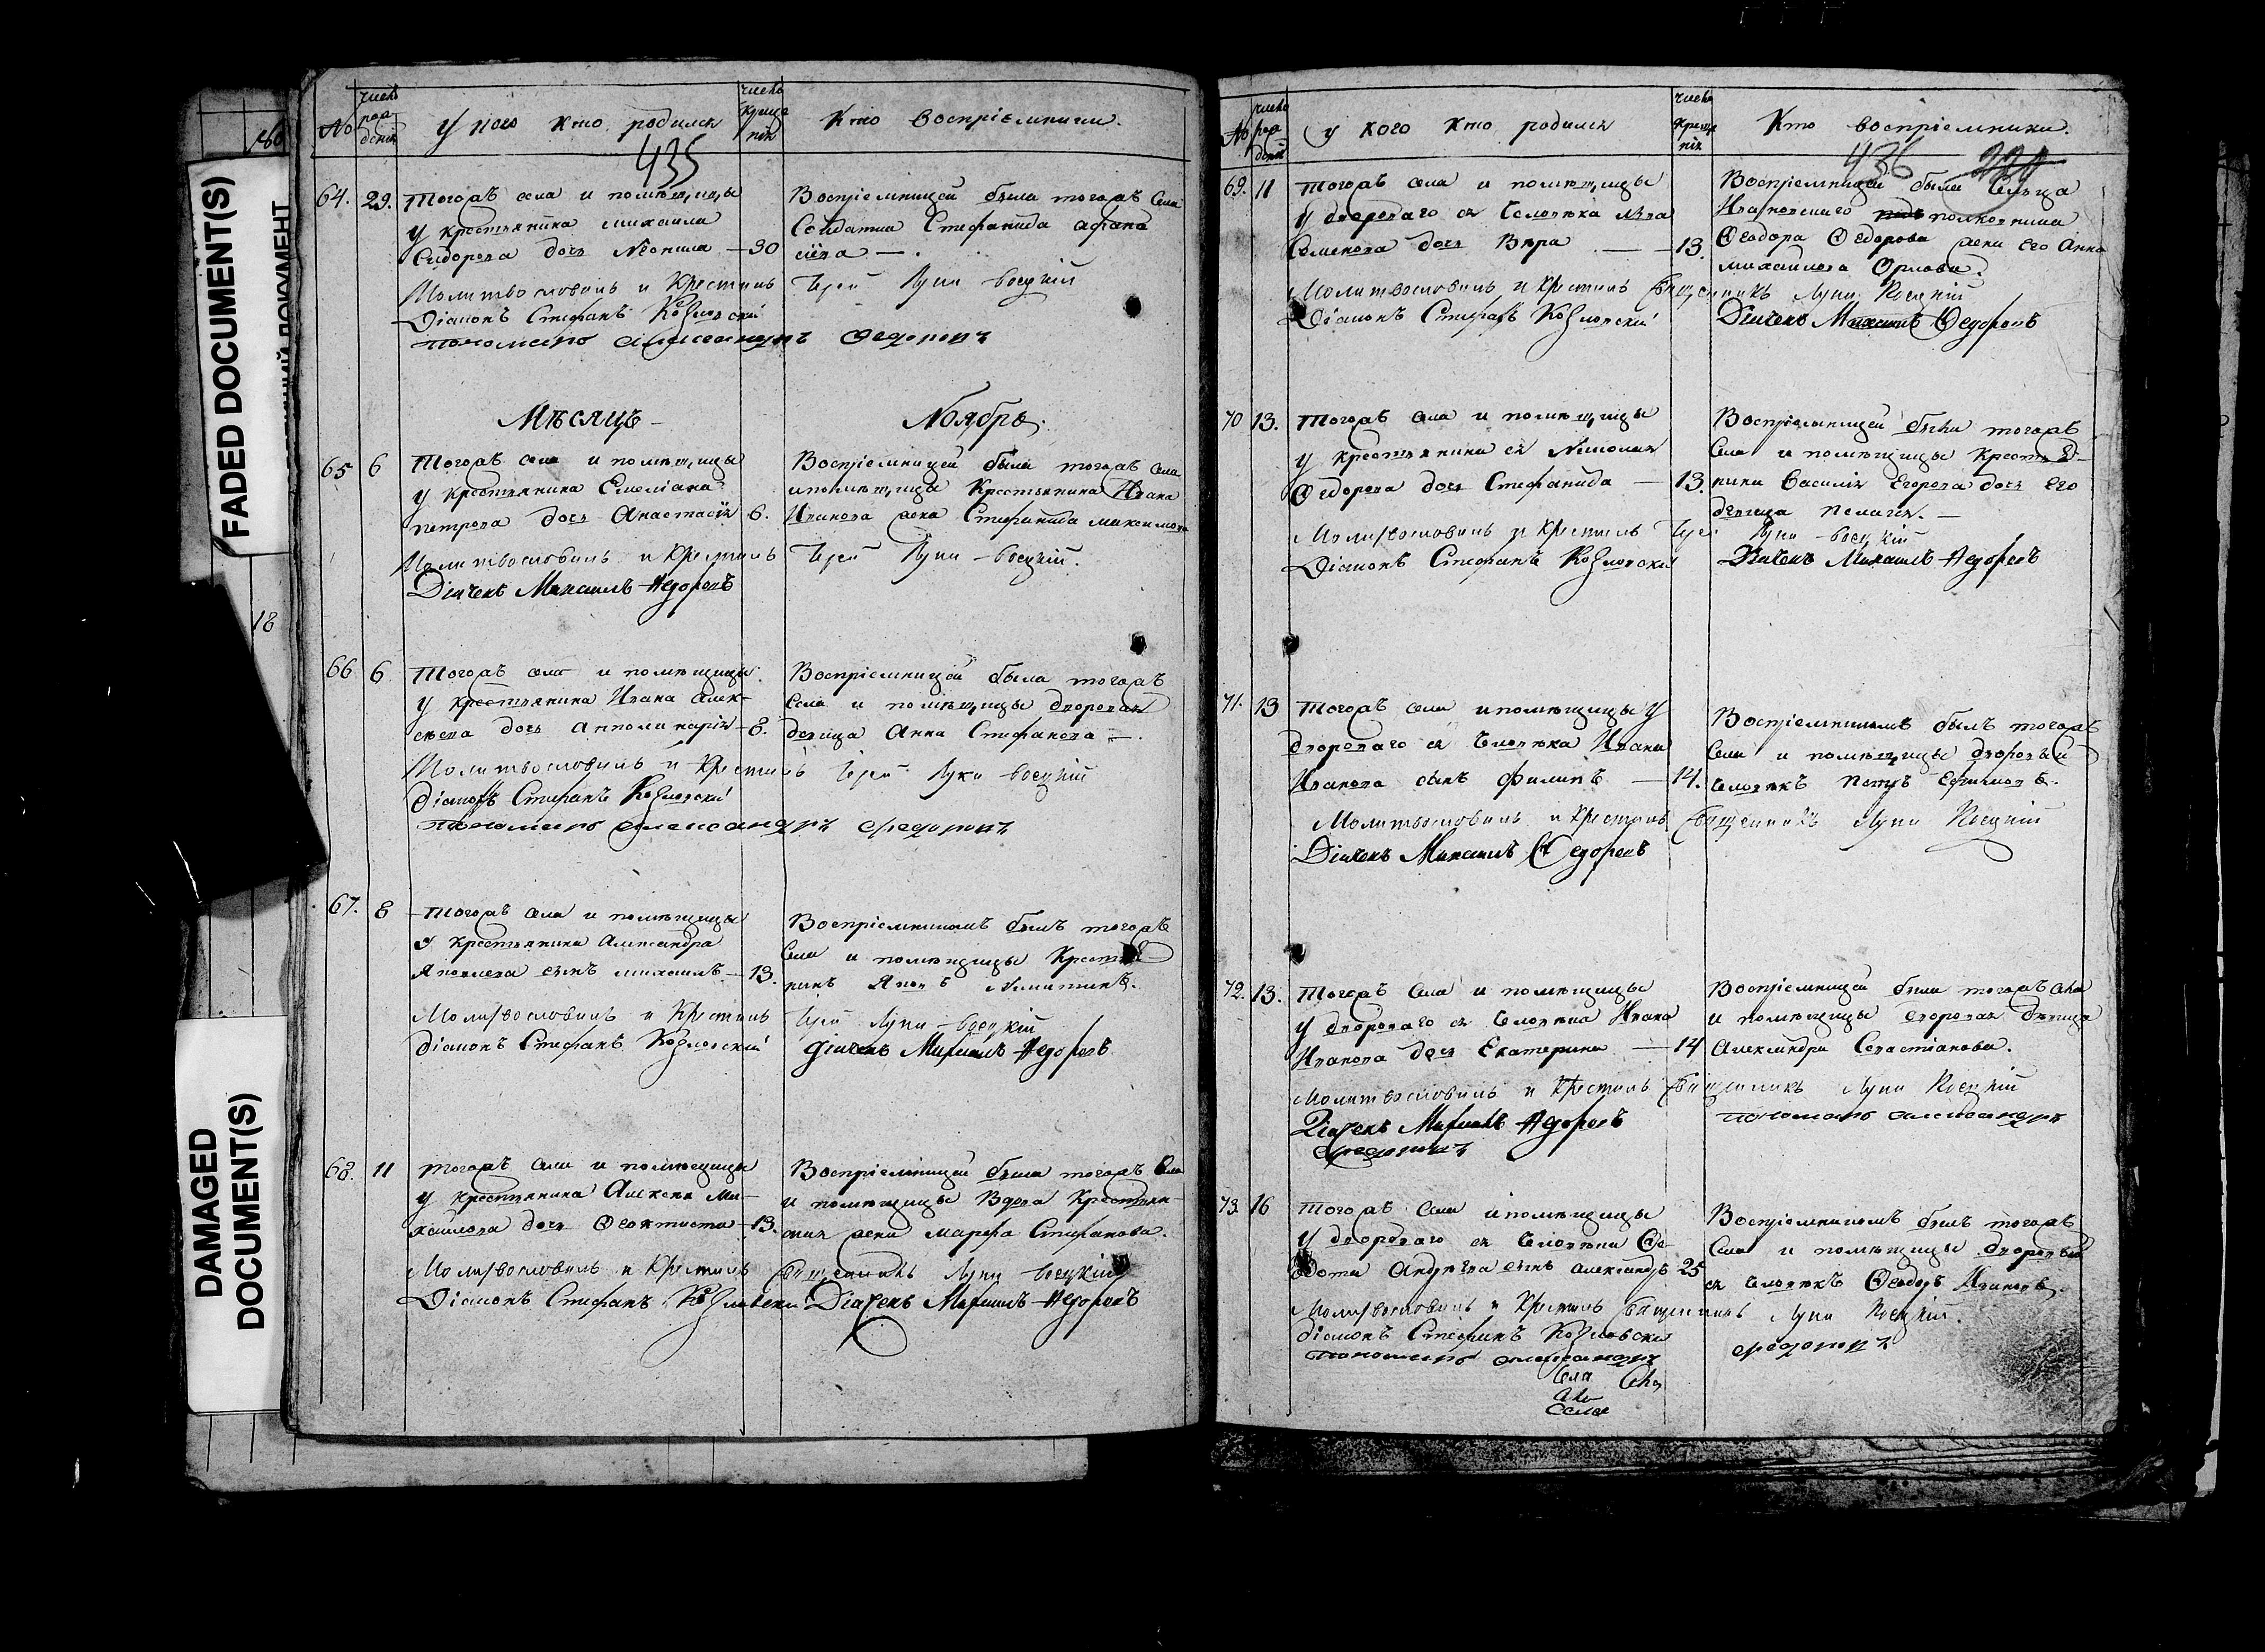 FADED DOCUMENT(S)
DAMAGED
DOCUMENT(S)
18
№
число рождения
У кого кто родился
число крещения
Кто восприемники.
435
64. 29.
Тогожъ села и помѣщицы
у крестьянина михаила
Сидорова дочь Неонила — 30
Восприемницей была тогожъ села
Солдатка Стефанида афана
сіева —.
Молитвословилъ и Крестилъ Іерей Лука
Діаконъ Стефанъ Козловскій
пономарь александръ Федоровъ
Мѣсяцъ Ноябрь.
65 6
Тогожъ села и помѣщицы
у крестьянина Емеліана
петрова дочь Анастасія 6.
Восприемницей была тогожъ села
и помѣщицы Крестьянина Ивана
Иванова жена Стефанида максимова
Молитвословилъ и Крестилъ Іерей Лука
Дьячекъ Михаилъ Федоровъ
66 6
Тогожъ села и помѣщицы
у крестьянина Ивана алек-
сѣева дочь апполинарія — 8.
Восприемницей была тогожъ
села и помѣщицы дворовая
девица Анна Стефанова —.
Молитвословилъ и Крестилъ Іерей Лука
Діаконъ Стефанъ Козловскій
пономарь александръ Федоровъ
67. 8
Тогожъ села и помѣщицы
у крестьянина Александра
Яковлева сынъ михаилъ — 13.
Восприемникомъ былъ тогожъ
села и помѣщицы Кресть
нинъ Яковъ Никитинъ.
Молитвословилъ и Крестилъ Іерей Лука
діаконъ Стефанъ Козловскій
Дьячекъ Михаилъ Федоровъ
68. 11
тогожъ села и помѣщицы
у крестьянина Алексея Ми-
хайлова дочь Феоктиста — 13.
Восприемницей была тогожъ села
и помѣщицы Вдова Крестьян-
ская жена марфа Стефанова.
Молитвословилъ и Крестилъ Священникъ Лука
Діаконъ Стефанъ Козловскій Дьячекъ Михаилъ Федоровъ
№
число рождения
у кого кто родился
число крещения
Кто восприемники.
436 220
69. 11
тогожъ села и помѣщицы
у двороваго ея человѣка льва
Семенова дочь Вѣра — 13.
Восприемницей была Ельца
Ивановскаго полковника
Феодора Федорова жена его Анна
михайлова Орлова.
Молитвословилъ и Крестилъ Священникъ Лука
Діаконъ Стефанъ Козловскій
Дьячекъ Михаилъ Федоровъ
70 13.
Тогожъ села и помѣщицы
у крестьянина ея Николая
Федорова дочь Стефанида — 13.
Восприемницей была тогожъ
села и помѣщицы Кресть
нина Василія Егорова дочь его
девица пелагея. —
Молитвословилъ и Крестилъ Іерей Лука
Діаконъ Стефанъ Козловскій
Дьячекъ Михаилъ Федоровъ
71. 13
Тогожъ села и помѣщицы у
двороваго ея Человѣка Ивана
Иванова сынъ филипъ — 14.
Восприемникомъ былъ тогожъ
села и помѣщицы дворовый
человѣкъ петръ Ефимовъ.
Молитвословилъ и Крестилъ Священникъ Лука
Дьячекъ Михаилъ Федоровъ
72. 13.
Тогожъ села и помѣщицы
у двороваго ея Человѣка Ивана
Иванова дочь Екатерина — 14
Восприемницей была тогожъ села
и помѣщицы дворовая девица
Александра Севастіанова.
Молитвословилъ и Крестилъ Священникъ Лука
Дьячекъ Михаилъ Федоровъ
пономарь александръ
Федоровъ
73. 16
Тогожъ села и помѣщицы
у двороваго ея Человѣка Фе-
дота Андрѣева сынъ александръ 25
Восприемникомъ былъ тогожъ
села и помѣщицы дворовый
ея человѣкъ Феодоръ Ивановъ.
Молитвословилъ и Крестилъ Священникъ Лука
діаконъ Стефанъ Козловскій
пономарь александръ
Федоровъ
села